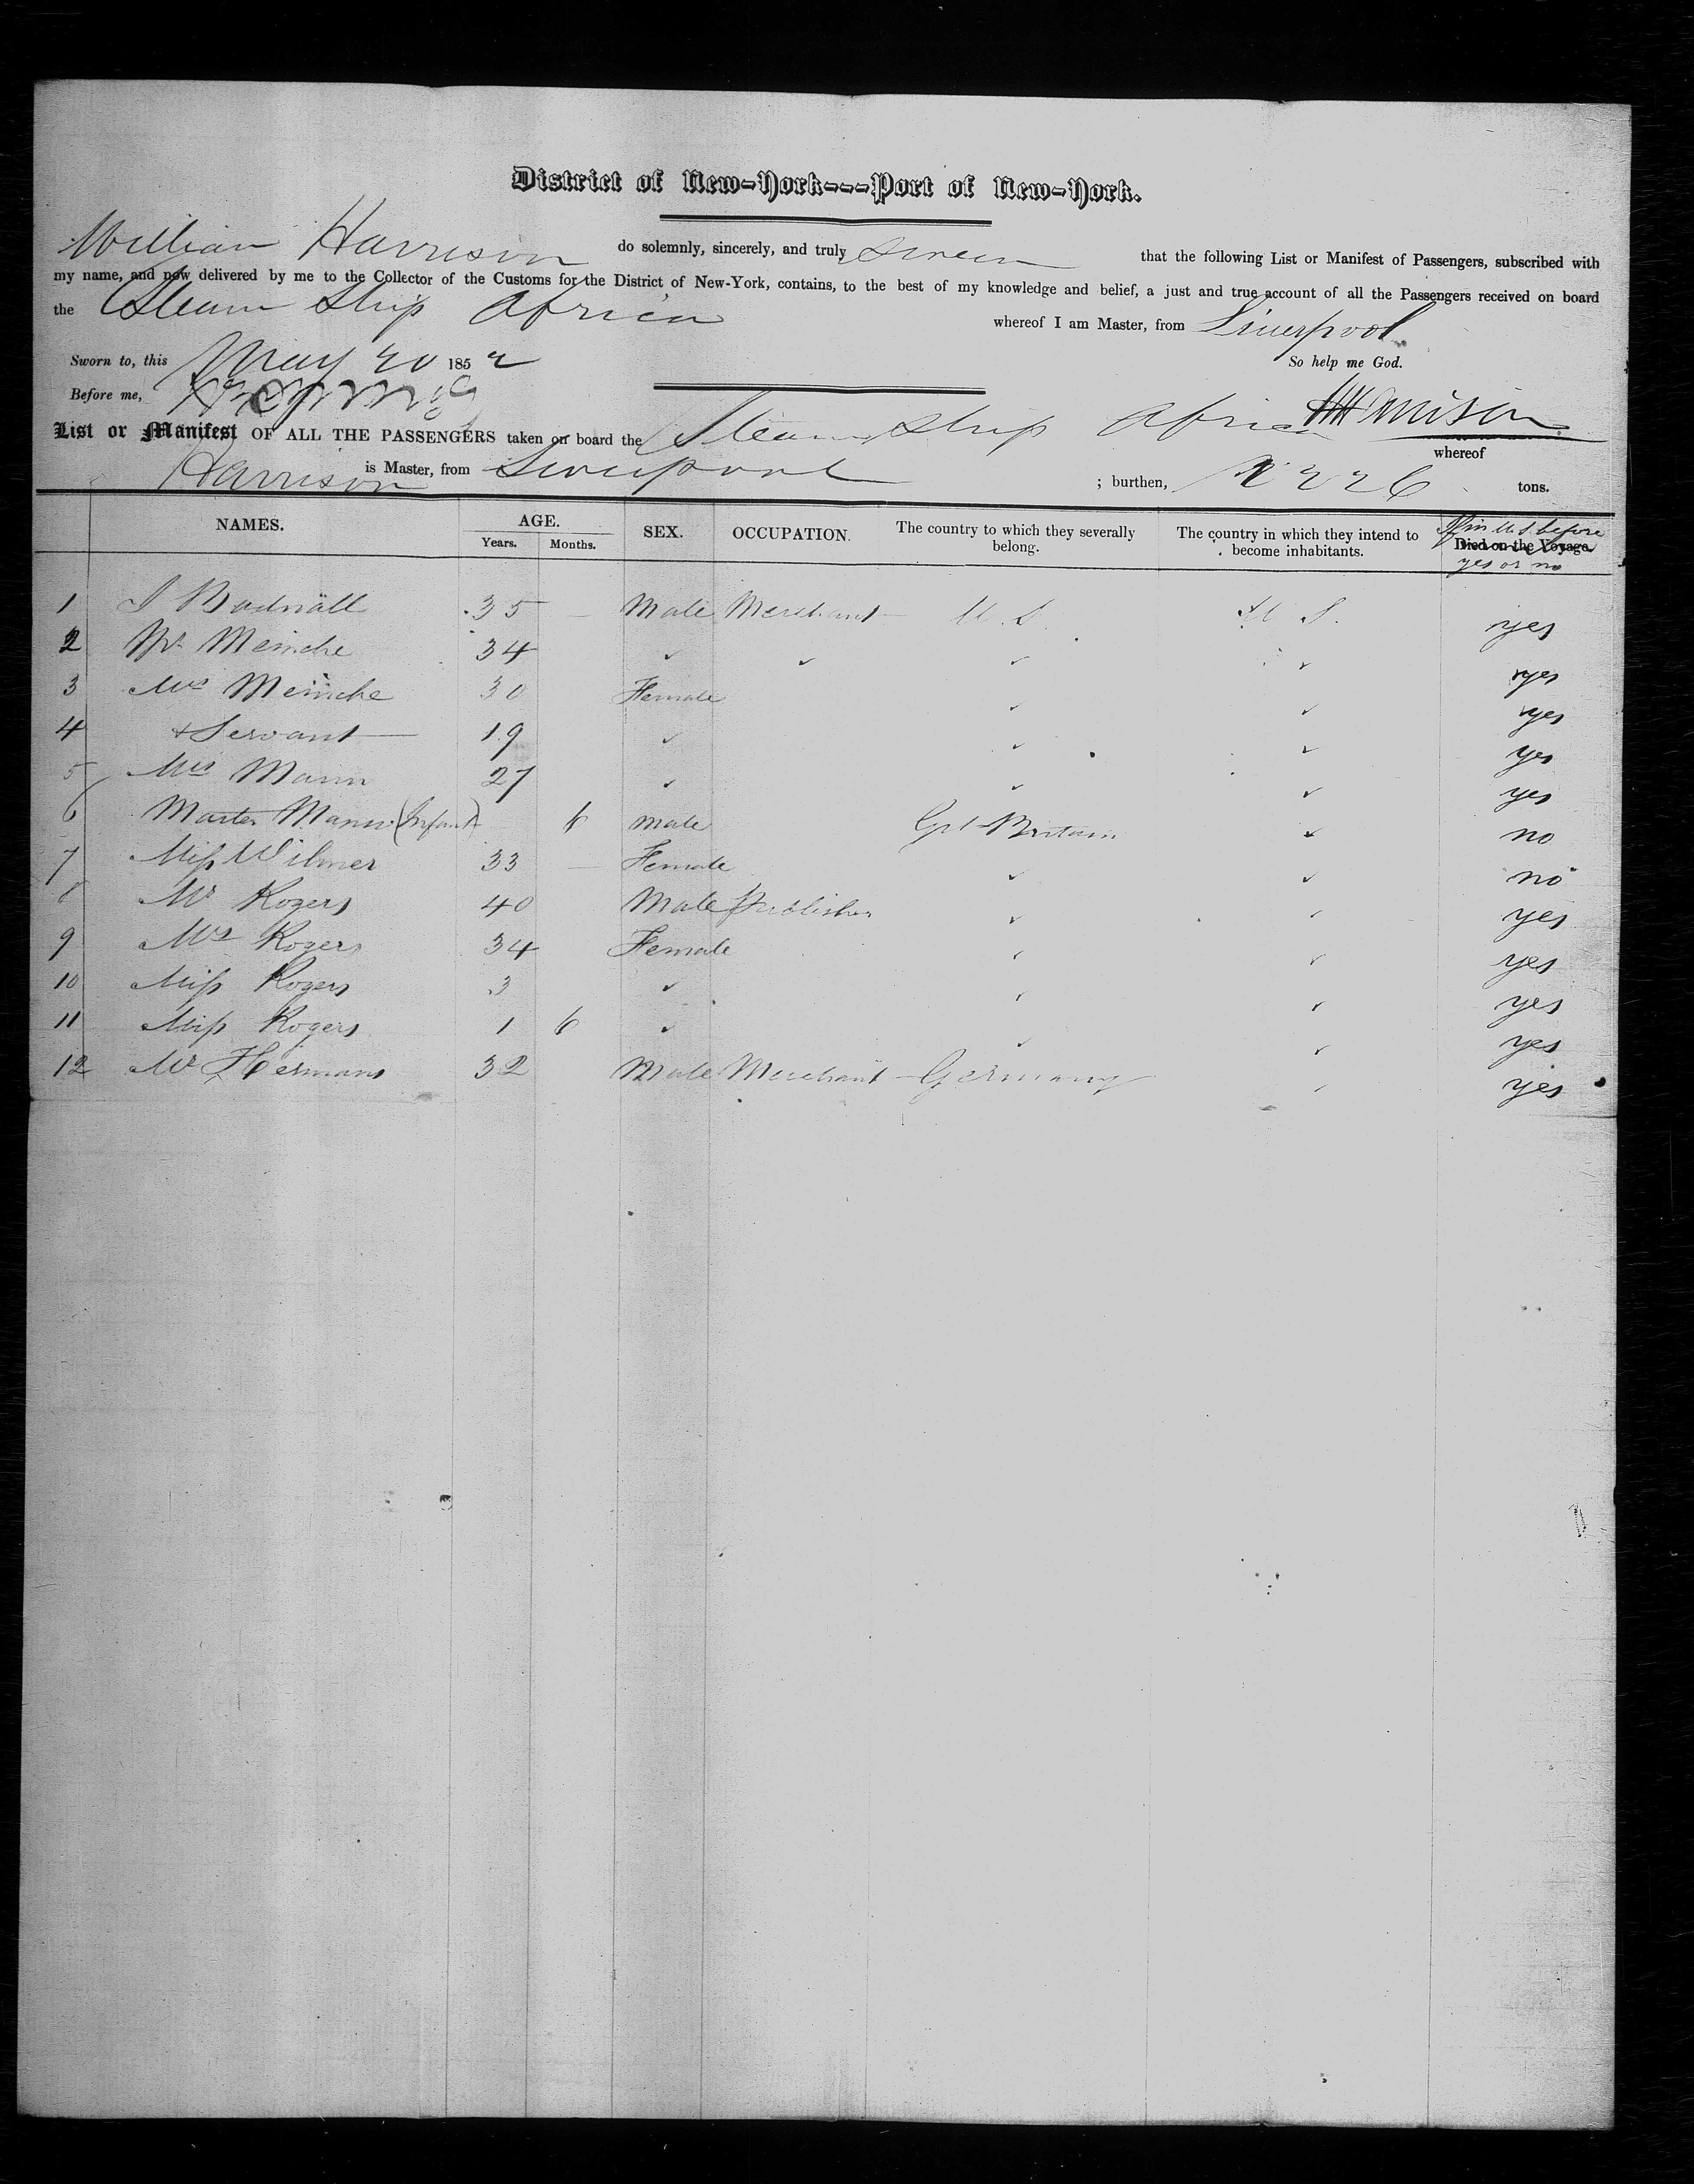 District of New-York---Port of New-York.
William Harrison do solemnly, sincerely, and truly swear that the following List or Manifest of Passengers, subscribed with
my name, and now delivered by me to the Collector of the Customs for the District of New-York, contains, to the best of my knowledge and belief, a just and true account of all the Passengers received on board
the Steam Ship Africa whereof I am Master, from Liverpool
Sworn to, this May 20 1852 So help me God.
Before me,
W Harrison
List or Manifest OF ALL THE PASSENGERS taken on board the Steam Ship Africa whereof
Harrison is Master, from Liverpool ; burthen, 2226 tons.
NAMES. AGE. Years. Months. SEX. OCCUPATION. The country to which they severally belong. The country in which they intend to become inhabitants. Died on the Voyage. If in U S before yes or no
1 J Badnall 35 — Male Merchant U. S. U S. yes
2 Mr Meinche 34 ✓ ✓ ✓ ✓ yes
3 Mrs Meinche 30 Female ✓ ✓ yes
4 + Servant 19 ✓ ✓ ✓ yes
5 Mrs Mann 27 ✓ ✓ ✓ yes
6 Master Mann (Infant) 6 male Grt Britain ✓ no
7 Miss Wilmer 33 — Female ✓ ✓ no
8 Mr Rogers 40 Male Publisher ✓ ✓ yes
9 Mrs Rogers 34 Female ✓ ✓ yes
10 Miss Rogers 3 ✓ ✓ ✓ yes
11 Miss Rogers 1 6 ✓ ✓ ✓ yes
12 Mr Hermans 32 Male Merchant Germany ✓ yes